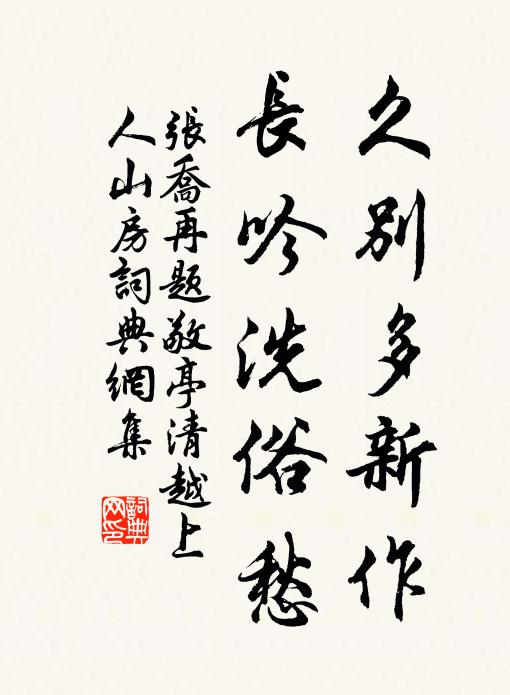 久別多新作
長吟洗俗愁
張喬再題敬亭清越上
人山房詞典網集
詞典
网印